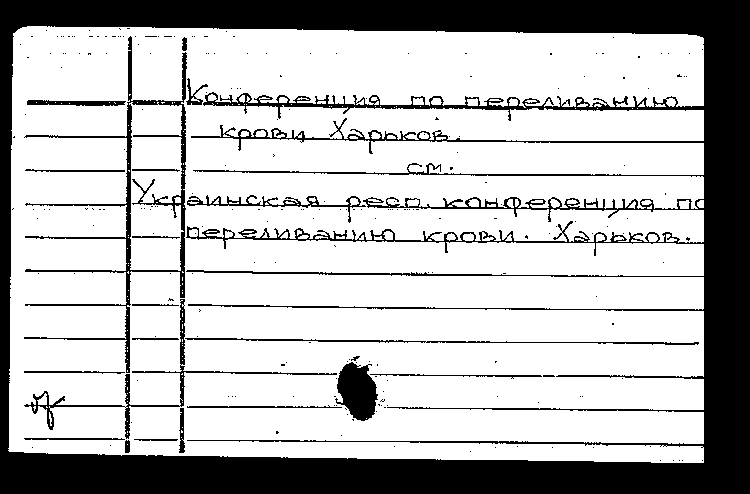 Конференция по переливанию
крови. Харьков.
см.
Украинская респ. конференция по
переливанию крови. Харьков.